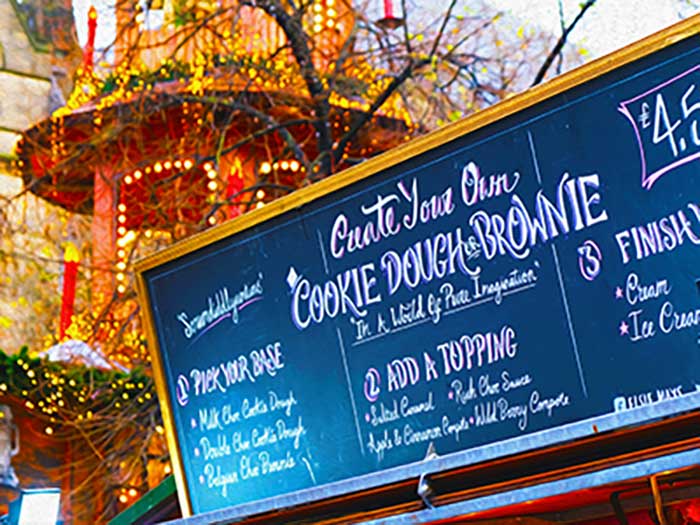 Create Your Own
COOKIE DOUGH or BROWNIE
"In A World Of Pure Imagination"
"Scrumdiddlyumptious"
① PICK YOUR BASE
★ Milk Choc Cookie Dough
★ Double Choc Cookie Dough
★ Belgian Choc Brownie
② ADD A TOPPING
★ Salted Caramel ★ Rich Choc Sauce
Apple & Cinnamon Compote ★ Wild Berry Compote
£4.5
③ FINISH
★ Cream
★ Ice Cream
ELSIE MAYS